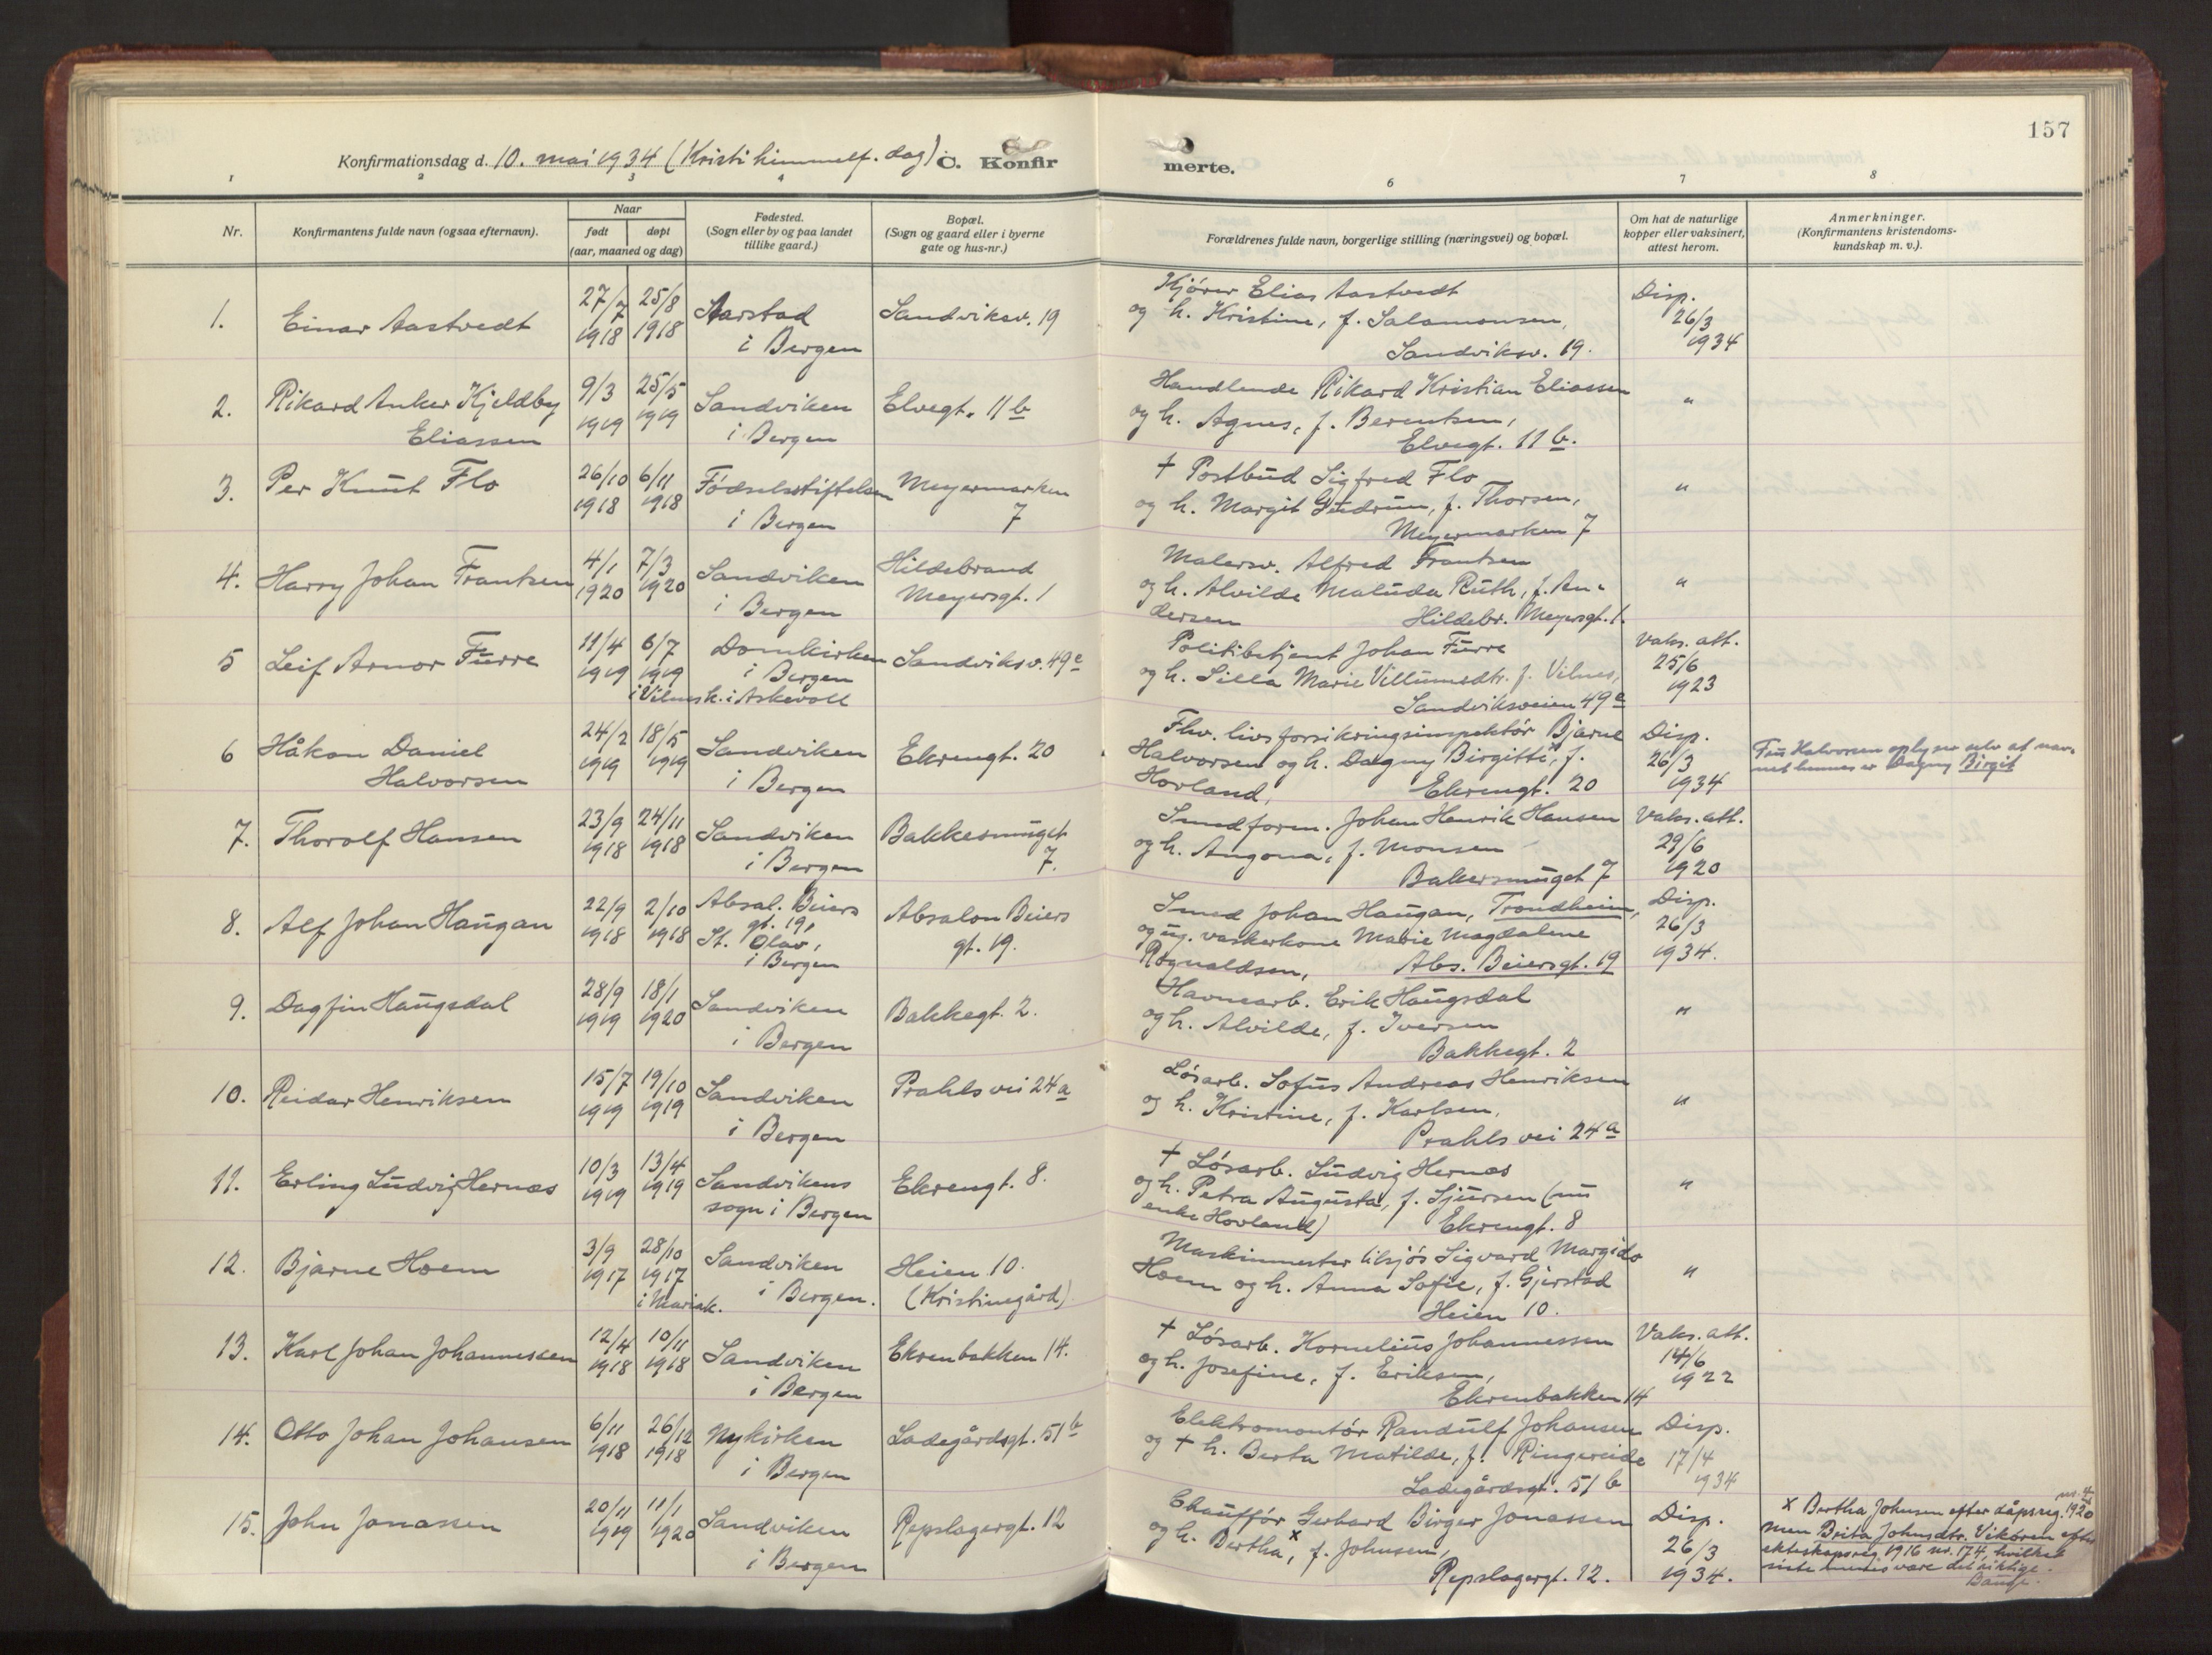 157
Konfirmationsdag d. 10. mai 1934 (Kristi himmelf. dag) C. Konfir
merte.
1 2 3 4 6 7 8
Nr.
Konfirmantens fulde navn (ogsaa efternavn).
Naar
født døpt
(aar, maaned og dag)
Fødested.
(Sogn eller by og paa landet
tillike gaard.)
Bopæl.
(Sogn og gaard eller i byerne
gate og hus-nr.)
Forældrenes fulde navn, borgerlige stilling (næringsvei) og bopæl.
Om hat de naturlige
kopper eller vaksinert,
attest herom.
Anmerkninger.
(Konfirmantens kristendoms-
kundskap m. v.).
1. Einar Aastvedt
27/7 1918
25/8 1918
Aarstad
i Bergen
Sandviksv. 19
Kjører Elias Aastvedt
og h. Kristine, f. Salamonsen,
Sandviksv. 19.
Disp.
26/3
1934
2. Rikard Anker Kjeldby
Eliassen
9/3 1919
25/5 1919
Sandviken
i Bergen
Elvegt. 11 b
Handlende Rikard Kristian Eliassen
og h. Agnes, f. Berentsen,
Elvegt. 11 b.
"
3. Per Knut Flo
26/10 1918
6/11 1918
Fødselsstiftelsen
i Bergen
Meyermarken
7
† Postbud Sigfred Flo
og h. Margit Gudrun, f. Thorsen,
Meyermarken 7
"
4. Harry Johan Frantsen
4/1 1920
7/3 1920
Sandviken
i Bergen
Hildebrand
Meyersgt. 1
Malersv. Alfred Frantsen
og h. Alvilde Maluda Ruth, f. An-
dersen Hildebr. Meyersgt. 1.
"
5 Leif Arnor Furre
11/4 1919
6/7 1919
i Vilnes k. i Askevoll
Domkirken
i Bergen
Sandviksv. 49 e
Politibetjent Johan Furre
og h. Silla Marie Villumsdtr. f. Vilnes,
Sandviksveien 49 e
Vaks. att.
25/6
1923
6 Håkon Daniel
Halvorsen
24/2 1919
18/5 1919
Sandviken
i Bergen
Ekrengt. 20
Fhv. livsforsikringsinspektør Bjarne
Halvorsen og h. Dagny Birgitte, f.
Hovland, Ekrengt. 20
Disp.
26/3
1934
Fru Halvorsen oplyser selv at nav-
net hennes er Dagny Birgit
7. Thorolf Hansen
23/9 1918
24/11 1918
Sandviken
i Bergen
Bakkesmuget
7.
Smedform. Johan Henrik Hansen
og h. Angona, f. Monsen
Bakersmuget 7
Vaks. att.
29/6
1920
8. Alf Johan Haugan
22/9 1918
2/10 1918
Absal. Beiers
gt. 19,
St. Olav,
i Bergen
Absalon Beiers
gt. 19.
Smed Johan Haugan, Trondheim,
og ug. vaskerkone Marie Magdalene
Rognaldsen, Abs. Beiersgt. 19
Disp.
26/3
1934.
9. Dagfin Haugsdal
28/9 1919
18/1 1920
Sandviken
i Bergen
Bakkegt. 2.
Havnearb. Erik Haugsdal
og h. Alvilde, f. Iversen
Bakkegt. 2
"
10. Reidar Henriksen
15/7 1919
19/10 1919
Sandviken
i Bergen
Prahls vei 24 a
Løsarb. Sofus Andreas Henriksen
og h. Kristine, f. Karlsen,
Prahls vei 24 a
"
11. Erling Ludvig Hernæs
10/3 1919
13/4 1919
Sandvikens
sogn i Bergen
Ekrengt. 8.
† Løsarb. Ludvig Hernæs
og h. Petra Augusta, f. Sjursen (nu
enke Hovland) Ekrengt. 8
"
12. Bjarne Hoem
3/9 1917
28/10 1917
i Mariak.
Sandviken
i Bergen.
Heien 10.
(Kristinegård)
Maskinmester tilsjøs Sigvard Margido
Hoem og h. Anna Sofie, f. Gjerstad
Heien 10.
"
13. Karl Johan Johannessen
12/4 1918
10/11 1918
Sandviken
i Bergen
Ekrenbakken 14.
† Løsarb. Kornelius Johannessen
og h. Josefine, f. Eriksen,
Ekrenbakken 14
Vaks. att.
14/6
1922
14. Otto Johan Johansen
6/11 1918
26/12 1918
Nykirken
i Bergen
Ladegårdsgt. 51 b
Elektromontør Randulf Johansen
og † h. Berta Matilde, f. Ringereide
Ladegårdsgt. 51 b
Disp.
17/4
1934
15. John Jonassen
20/11 1919
11/1 1920
Sandviken
i Bergen
Repslagergt. 12
Chauffør Gerhard Birger Jonassen
og h. Bertha x, f. Johnsen,
Repslagergt. 12.
Disp.
26/3
1934.
x Bertha Johnsen efter dåpsreg. 1920 nr. 4
men Brita Johnsdtr. Vikøren efter
ekteskapsreg. 1916 nr. 174, hvilket
siste menes være det riktige.